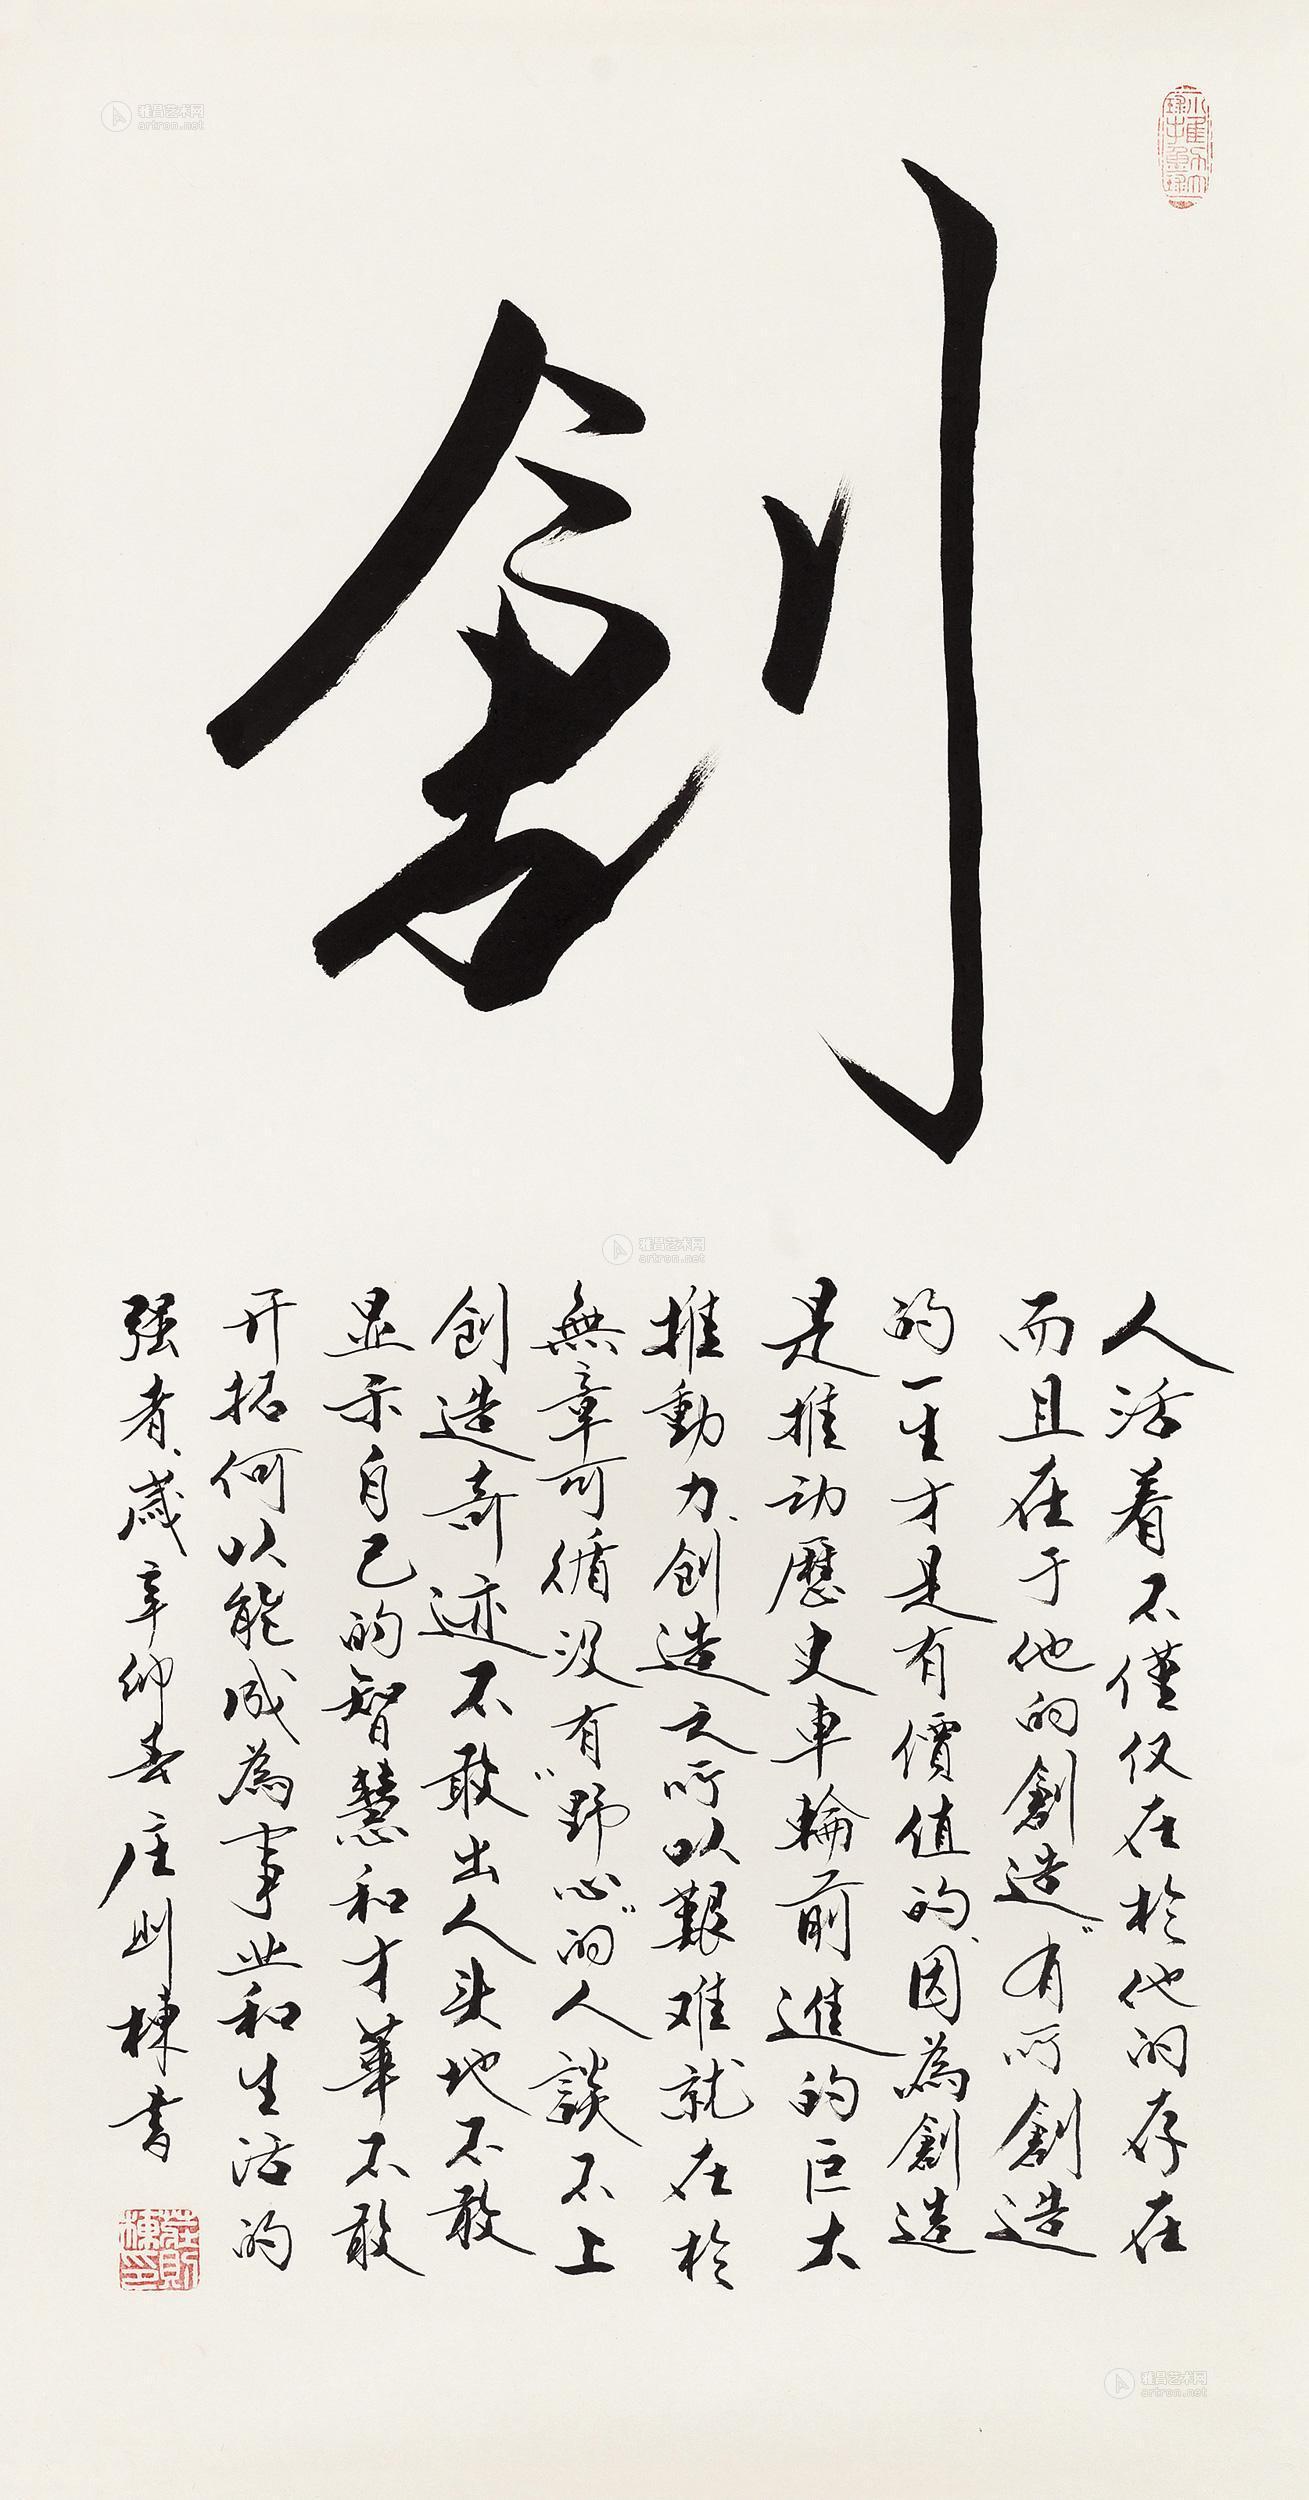 創
人活着不僅仅在於他的存在
而且在于他的創造”有”所創造
的一生才是有價值的、因為創造
是推动歷史車輪前進的巨大
推動力、創造之所以艱难就在於
無章可循没有“野心”的人談不上
创造奇迹不敢出人头地不敢
显示自己的智慧和才華不敢
开拓何以能成為事业和生活的
强者、歲辛卯春庄则棟书
莊則棟印
雅昌艺术网
artron.net
雅昌艺术网
artron.net
雅昌艺术网
artron.net